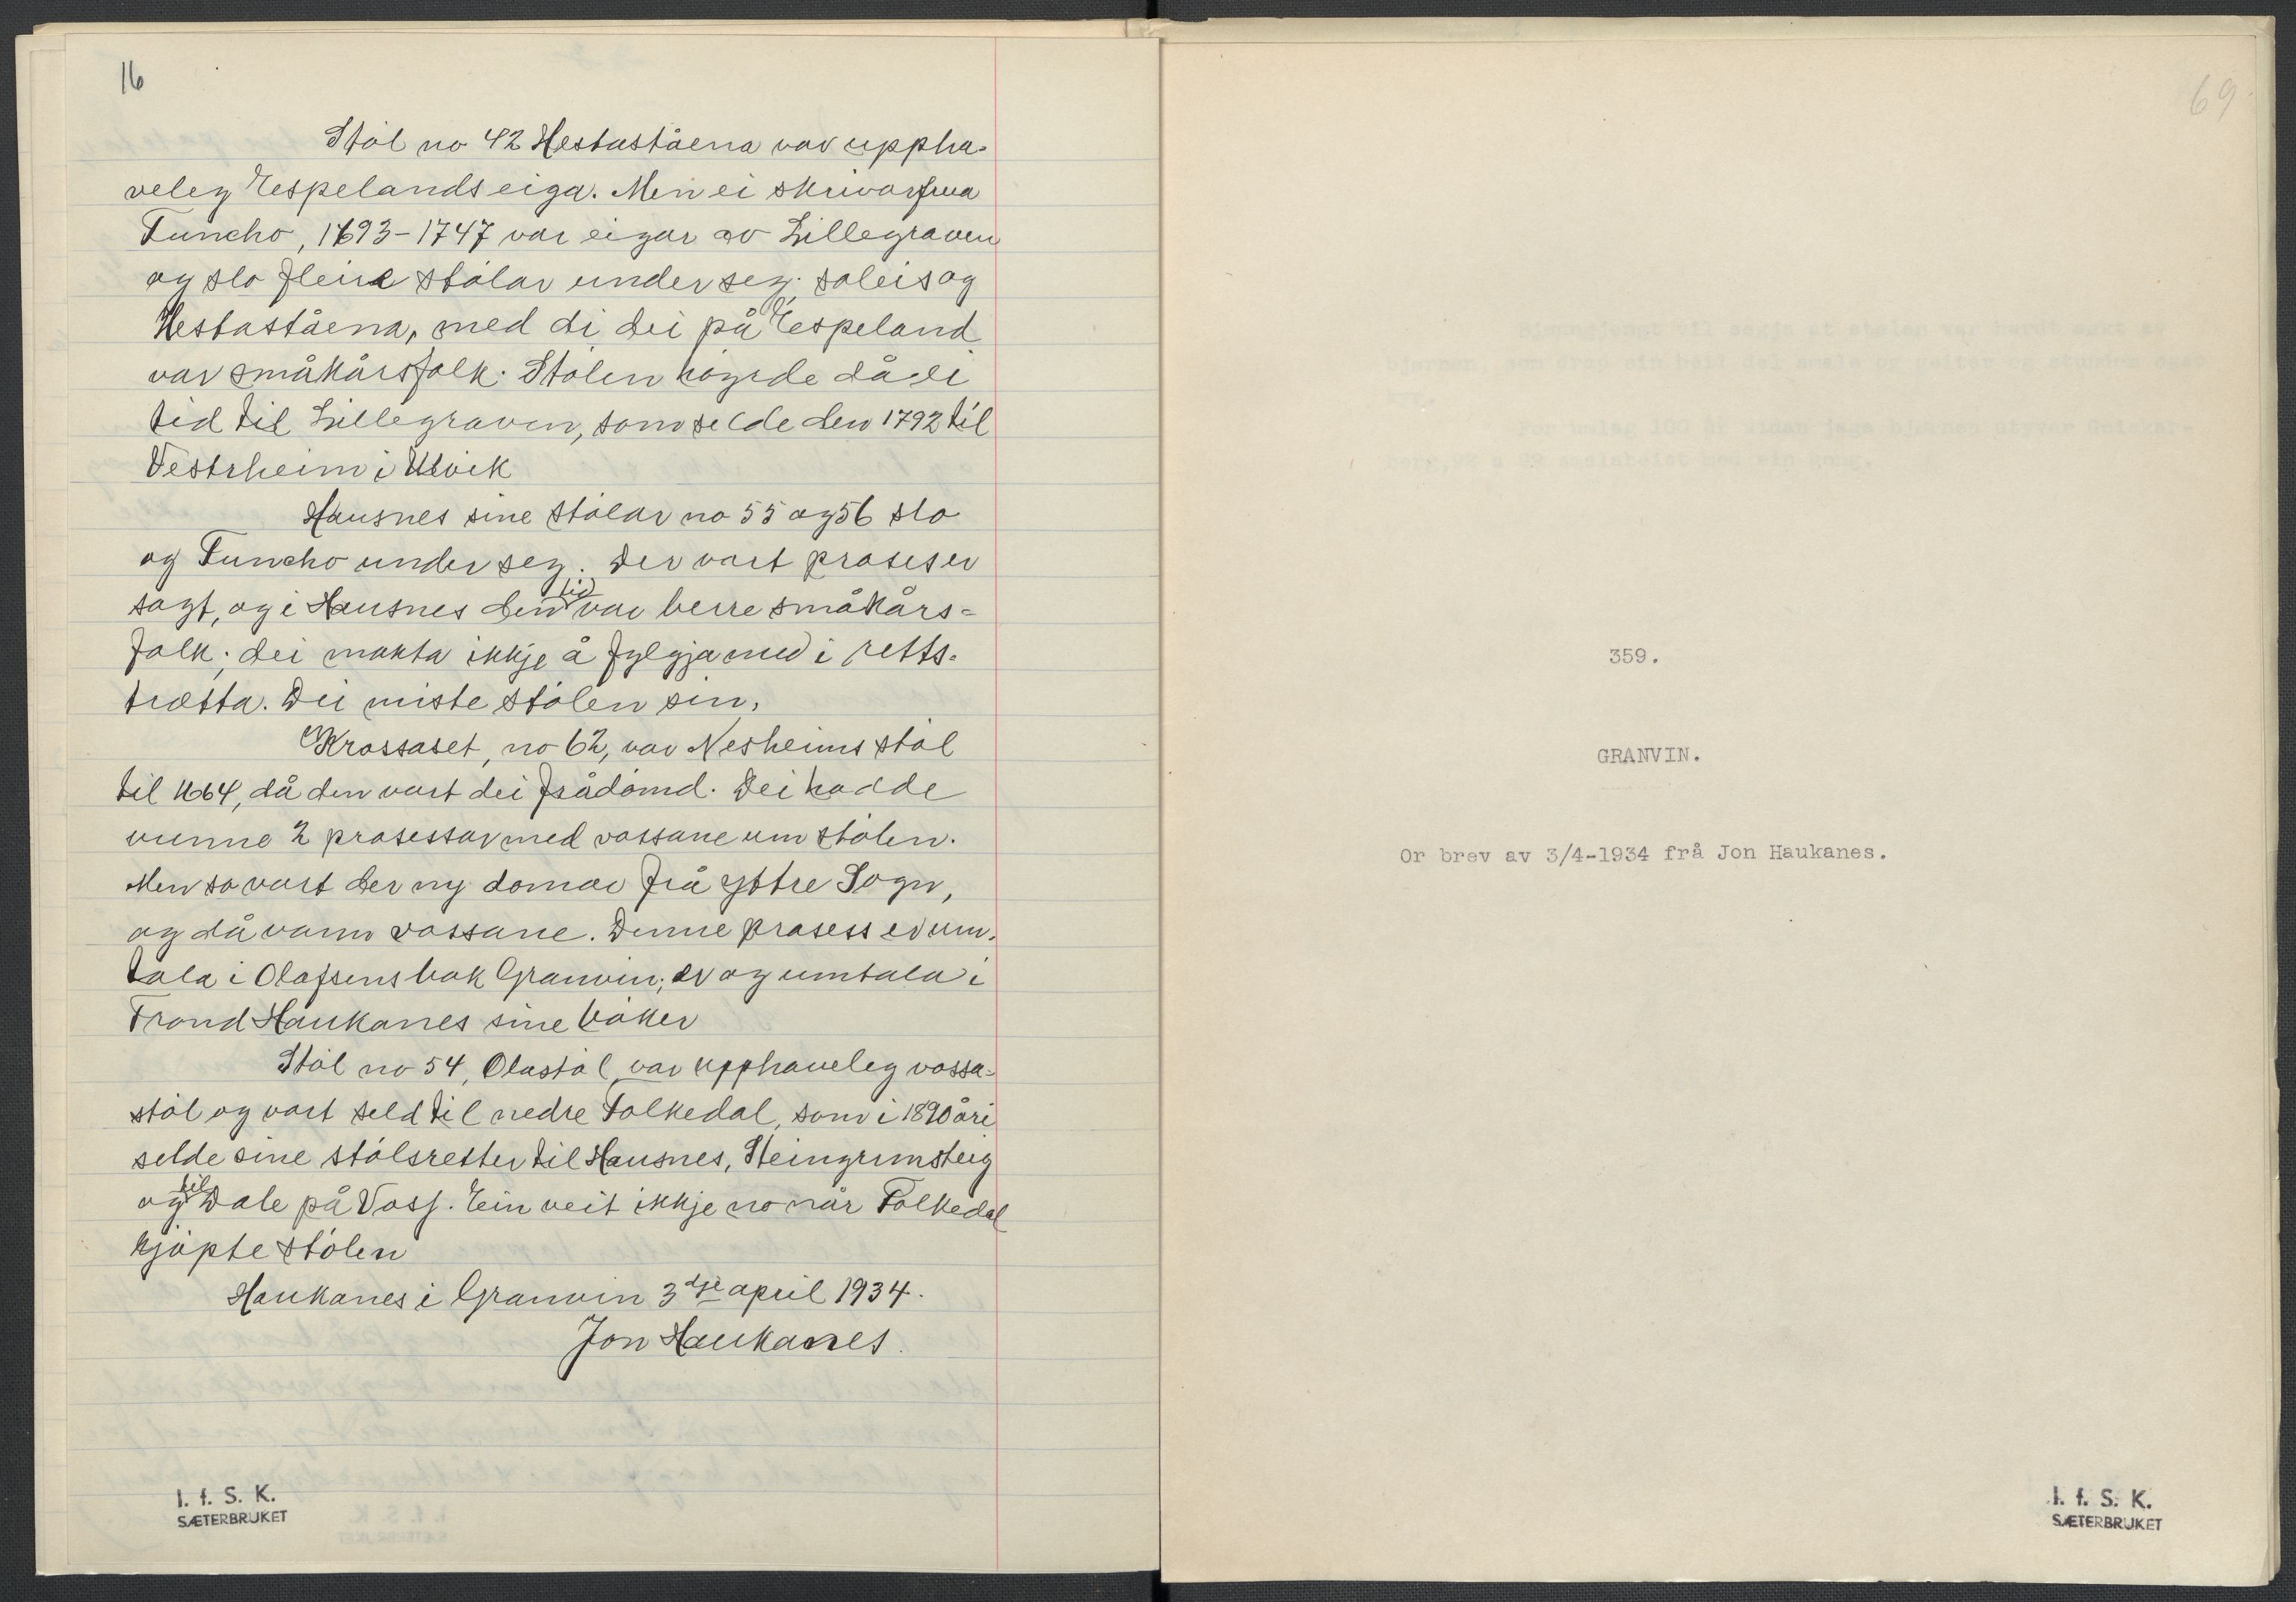 16
Støl no 42 Hestaståena var uppha-
veleg Espelands eiga. Men ei skrivarfrua
Funcho, 1693-1747 var eigar av Lillegraven
og slo fleire stølar under seg; soleis og
Hestaståena, med di dei på Espeland
var småkårsfolk. Stølen høyrde då ei
tid til Lillegraven, som selde den 1792 til
Vestrheim i Ulvik
Hausnes sine stølar no 55 og 56 slo
og Funcho under seg. Der vart proses er
sagt, og i Hausnes den tid var berre småkårs-
folk; dei makta ikkje å fylgja med i retts-
trætta. Dei miste stølen sin.
Krossaset, no 62, var Nesheims støl
til 1664, då den vart dei frådømd. Dei hadde
vunne 2 prosessar med vossane um stølen.
Men so vart der ny domar frå yttre Sogn,
og då vann vossane. Denne prosess er um-
tala i Olafsens bok Granvin; er og umtala i
Trond Haukanes sine bøker
Støl no 54, Olastøl, var upphaveleg vossa-
støl og vart seld til nedre Folkedal, som i 1890 åri
selde sine stølsretter til Hausnes, Steingrimsteig
og til Dale på Voss. Ein veit ikkje no når Folkedal
kjøpte stølen
Haukanes i Granvin 3dje april 1934.
Jon Haukanes.
I. f. S. K.
SÆTERBRUKET
69.
359.
GRANVIN.
Or brev av 3/4-1934 frå Jon Haukanes.
I. f. S. K.
SÆTERBRUKET